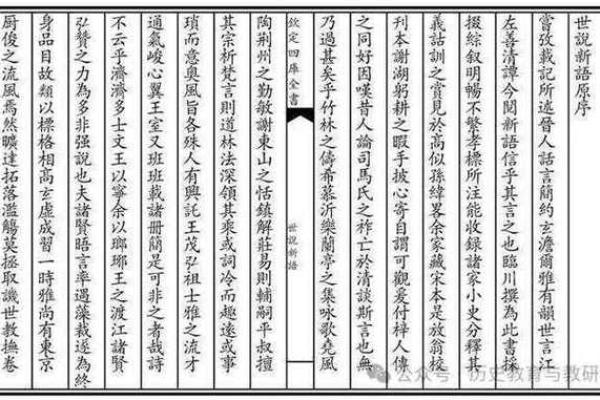 世說新語原序
嘗攷載記所述晉人話言簡約玄澹爾雅有韻世言江
左善清譚今閱新語信乎其言之也臨川撰為此書採
掇綜叙明暢不繁孝標所注能收錄諸家小史分釋其
義詁訓之賞見於高似孫緯畧余家藏宋本是放翁校
刊本謝湖躬耕之暇手披心寄自謂可觀爰付梓人傳
之同好因嘆昔人論司馬氏之祚亡於清談斯言也無
乃過甚矣乎竹林之儔希慕沂樂蘭亭之集咏歌堯風
欽定四庫全書
世說新語
陶荆州之勤敏謝東山之恬鎮解莊易則輔嗣平叔擅
其宗析梵言則道林法深領其乘或詞冷而趣遠或事
瑣而意奥風旨各殊人有興託王茂弘祖士雅之流才
通氣峻心翼王室又班班載諸册簡是可非之者哉詩
不云乎濟濟多士文王以寧余以瑯琊王之渡江諸賢
弘贊之力為多非强說也夫諸賢晤言率遇藻裁遂為終
身品目故類以標格相高玄虛成習一時雅尚有東京
厨俊之流風焉然曠達拓落濫觴莫拯取譏世教撫卷
公众号 · 历史教育与教研